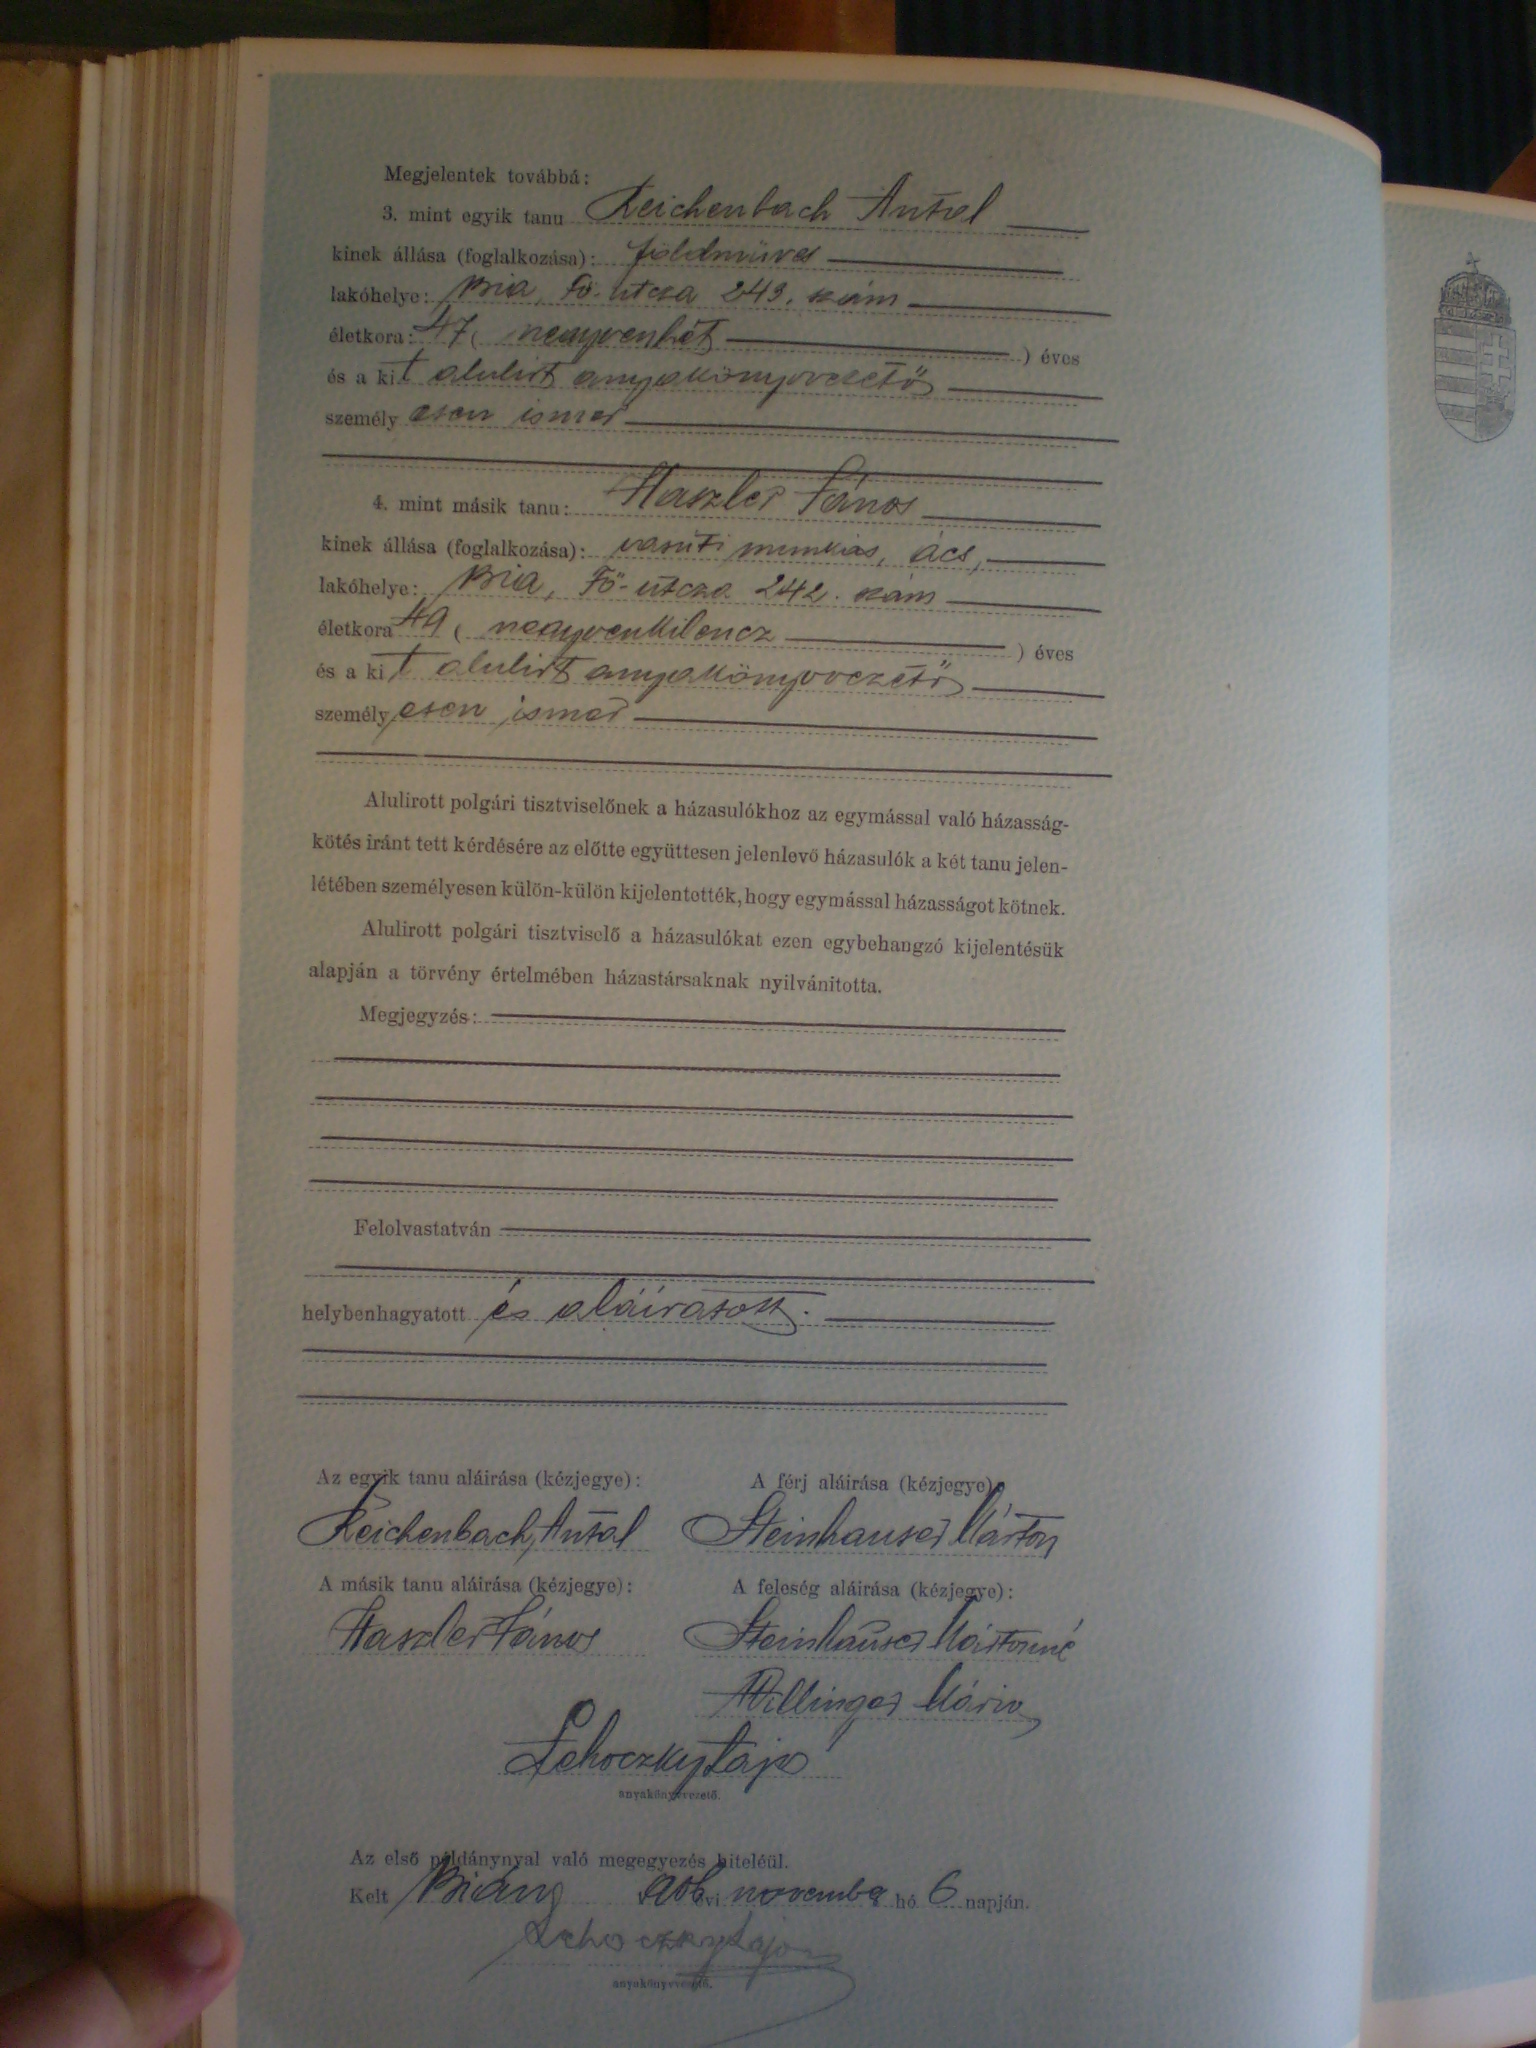 Megjelentek továbbá:
3. mint egyik tanu Reichenbach Antal
kinek állása (foglalkozása): földmüves
lakóhelye: Bia, Fő-utcza 243. szám
életkora: 47 ( negyvenhét ) éves
és a kit alulirt anyakönyvvezető
személyesen ismer
4. mint másik tanu: Haszler János
kinek állása (foglalkozása): vasúti munkás, ács,
lakóhelye: Bia, Fő-utcza 242. szám
életkora 49 ( negyvenkilencz ) éves
és a kit alulirt anyakönyvvezető
személyesen ismer
Alulirott polgári tisztviselőnek a házasulókhoz az egymással való házasság-
kötés iránt tett kérdésére az előtte együttesen jelenlevő házasulók a két tanu jelen-
létében személyesen külön-külön kijelentették, hogy egymással házasságot kötnek.
Alulirott polgári tisztviselő a házasulókat ezen egybehangzó kijelentésük
alapján a törvény értelmében házastársaknak nyilvánitotta.
Megjegyzés:
Felolvastatván
helybenhagyatott és aláiratott.
Az egyik tanu aláirása (kézjegye): A férj aláirása (kézjegye)
Reichenbach Antal Steinhauser Márton
A másik tanu aláirása (kézjegye): A feleség aláirása (kézjegye):
Haszler János Steinhauser Mártonné
Willinger Mária
Lehoczky Lajos
anyakönyvvezető.
Az első példánynyal való megegyezés hiteléül.
Kelt Bián, évi november hó 6 napján.
Lehoczky Lajos
anyakönyvvezető.